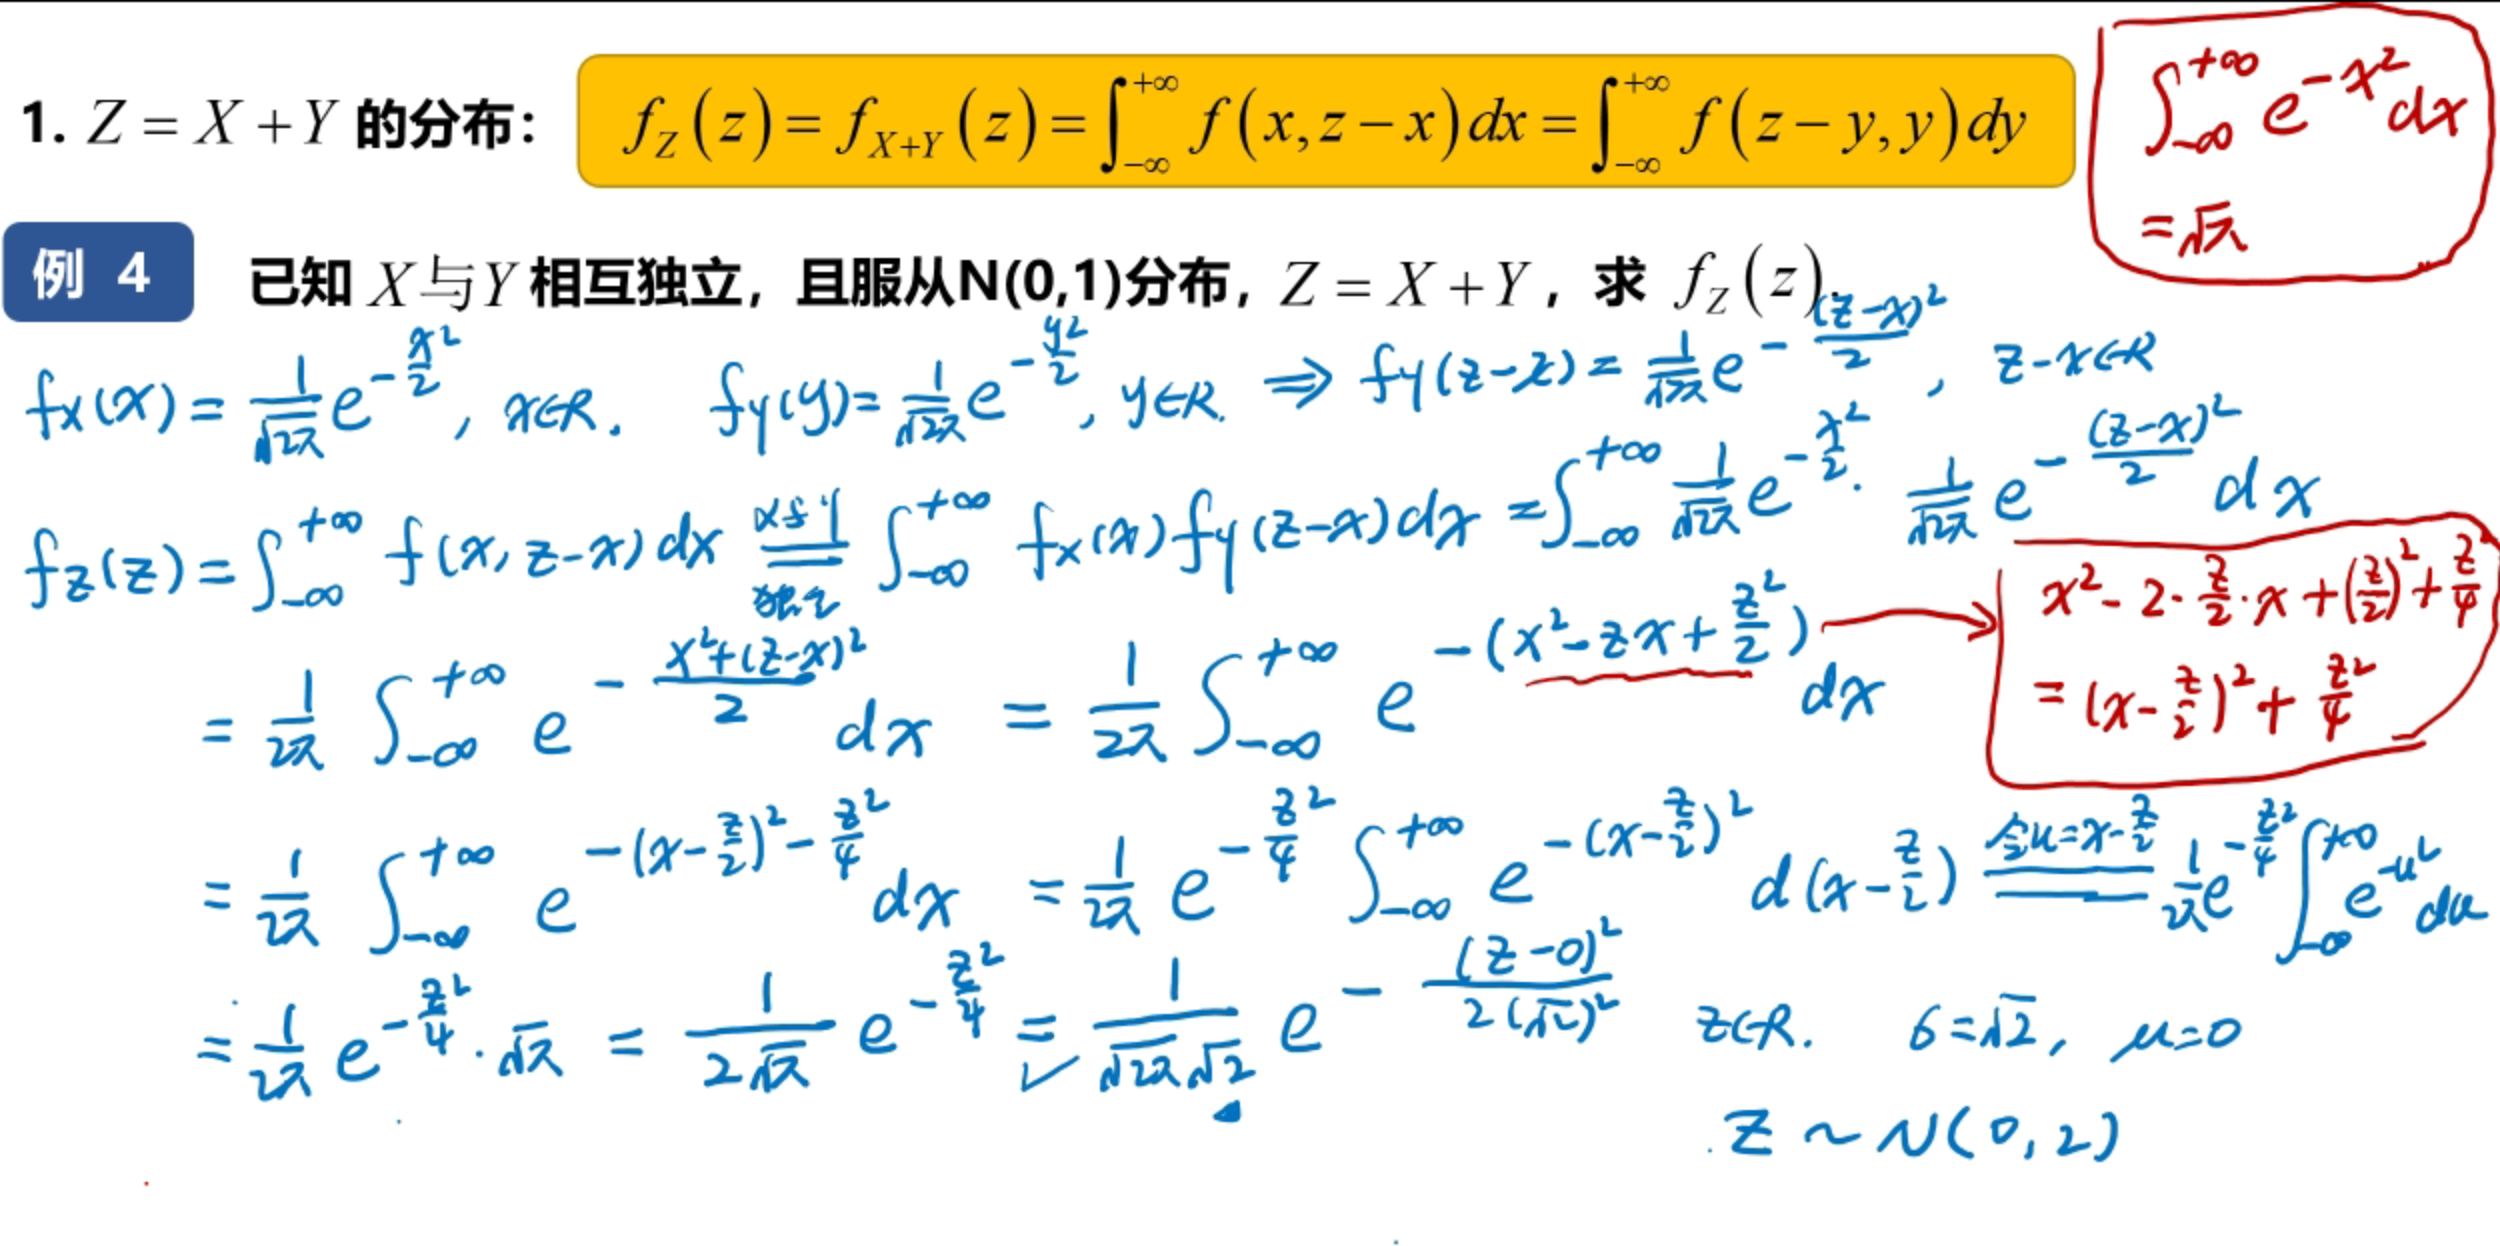 1. Z = X + Y 的分布： f_Z(z) = f_{X+Y}(z) = ∫_{-∞}^{+∞} f(x, z-x)dx = ∫_{-∞}^{+∞} f(z-y, y)dy
∫_{-∞}^{+∞} e^{-x²}dx
=√π
例 4 已知 X与Y 相互独立，且服从N(0,1)分布，Z = X + Y，求 f_Z(z).
f_X(x) = 1/√2π e^{-x²/2}, x∈R. f_Y(y) = 1/√2π e^{-y²/2}, y∈R. ⇒ f_Y(z-x) = 1/√2π e^{-(z-x)²/2}, z-x∈R
f_Z(z) = ∫_{-∞}^{+∞} f(x, z-x)dx X与Y独立= ∫_{-∞}^{+∞} f_X(x)f_Y(z-x)dx = ∫_{-∞}^{+∞} 1/√2π e^{-x²/2} · 1/√2π e^{-(z-x)²/2} dx
= 1/2π ∫_{-∞}^{+∞} e^{-(x²+(z-x)²)/2} dx = 1/2π ∫_{-∞}^{+∞} e^{-(x²-zx+z²/2)} dx
x² - 2·z/2·x + (z/2)² + z/4
= (x-z/2)² + z²/4
= 1/2π ∫_{-∞}^{+∞} e^{-(x-z/2)²-z²/4} dx = 1/2π e^{-z²/4} ∫_{-∞}^{+∞} e^{-(x-z/2)²} d(x-z/2) 令u=x-z/2= 1/2π e^{-z²/4} ∫_{-∞}^{+∞} e^{-u²}du
= 1/2π e^{-z²/4} · √π = 1/2√π e^{-z²/4} = 1/√2π√2 e^{-(z-0)²/2(√2)²} z∈R. σ=√2, μ=0
Z ~ N(0,2)